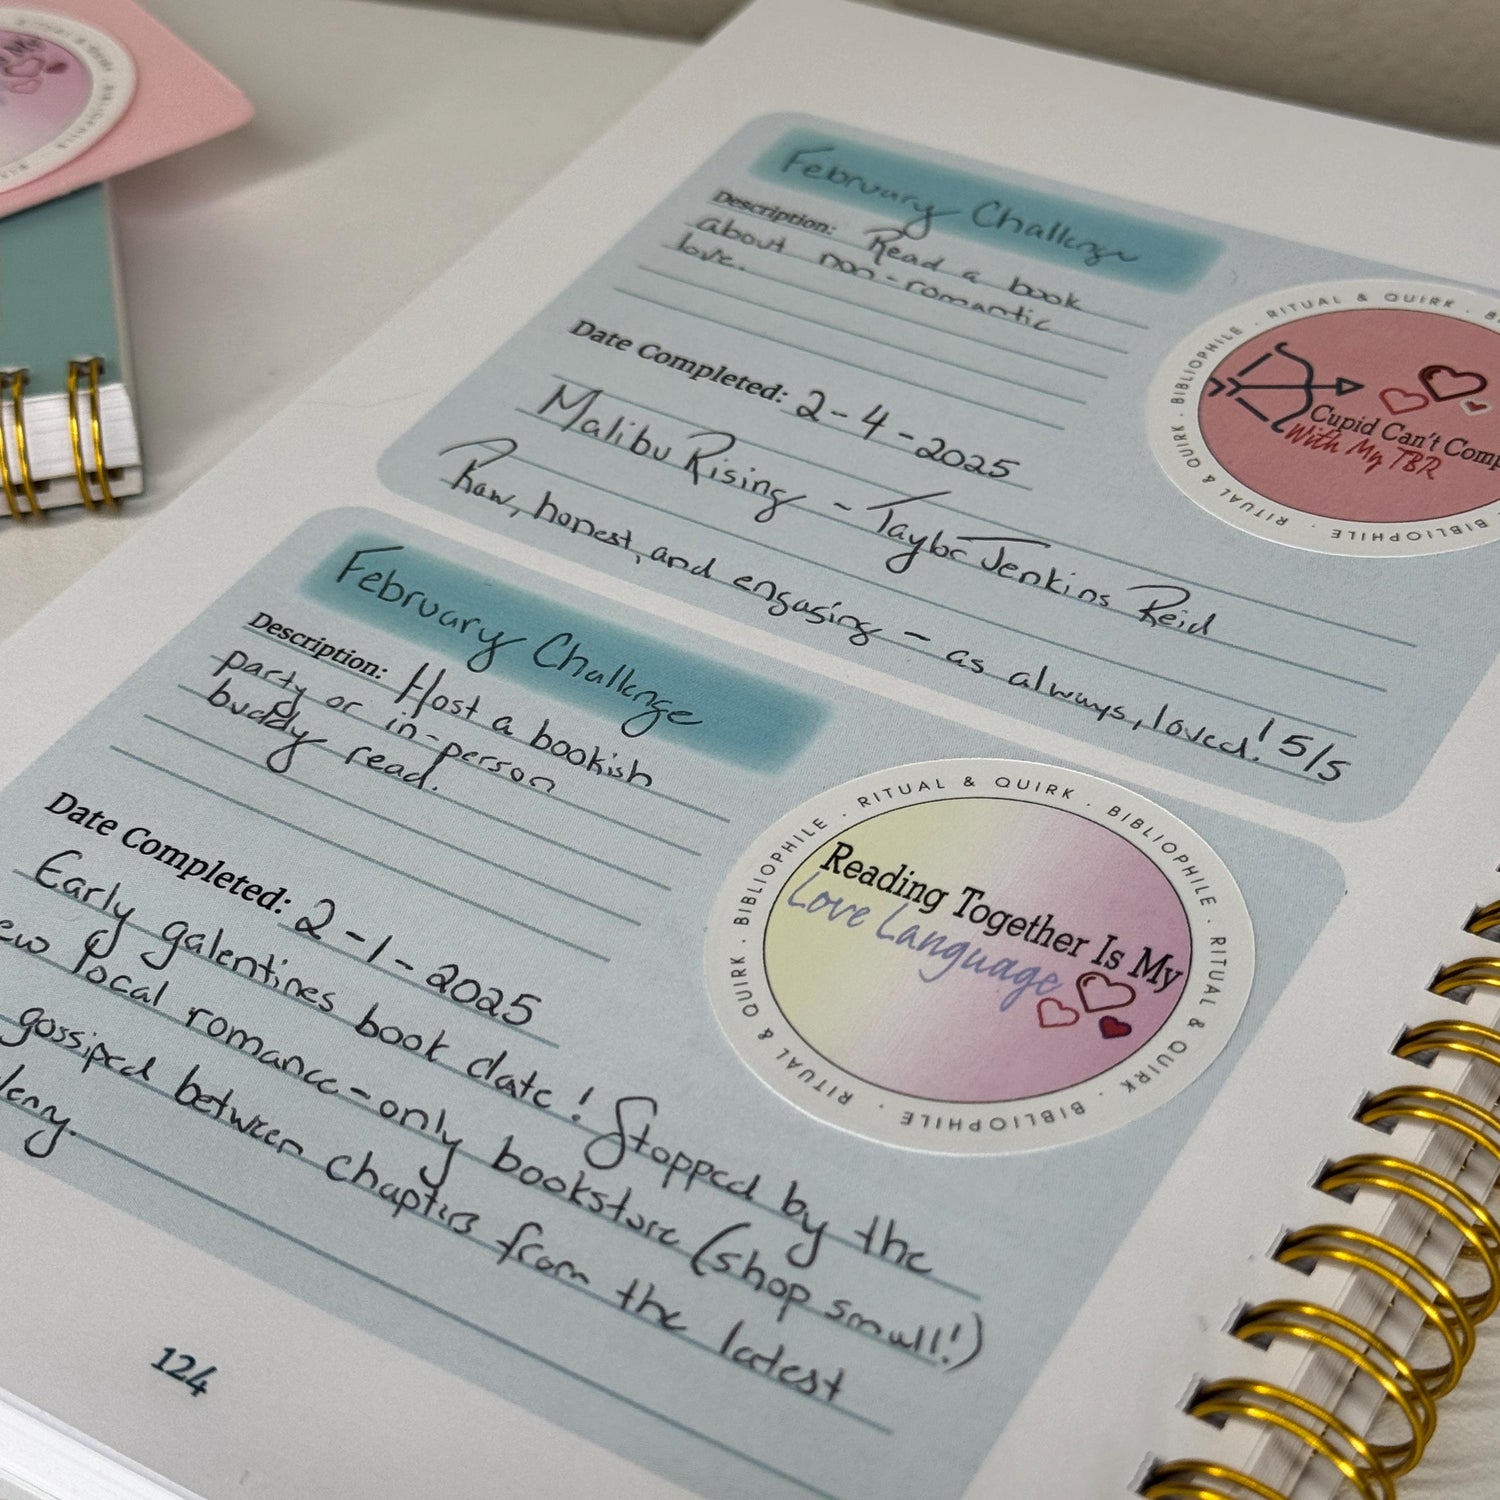 February Challenge
Description: Read a book
about non-romantic
love.
Date Completed: 2-4-2025
Malibu Rising - Taylor Jenkins Reid
Raw, honest, and engaging - as always, loved! 5/5
RITUAL & QUIRK · BIBLIOPHILE · RITUAL & QUIRK · BIBLIOPHILE
Cupid Can't
With My TBR
February Challenge
Description: Host a bookish
party or in-person
buddy read.
Date Completed: 2-1-2025
Early galentines book date! Stopped by the
local romance-only bookstore (shop small!)
gossiped between chapters from the latest
RITUAL & QUIRK · BIBLIOPHILE · RITUAL & QUIRK · BIBLIOPHILE · RITUAL & QUIRK · BIBLIOPHILE
Reading Together Is My
Love Language
124